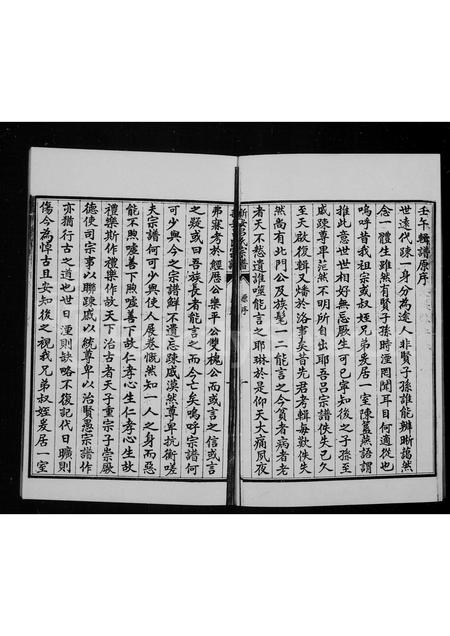 壬午輯譜原序
世遠代疎一身分為遠人非賢子孫誰能辨晰藹然
念一體生雖然有賢子孫時湮罔聞耳目何適從也
嗚呼昔我祖宗或叔姪兄弟爰居一室陳羹燕語謂
推此意世世相好無忘厥生可已寧知後之子孫
戚疎尊卑茫然不明所自出耶吾呂宗譜佚失已久
至天啟復輯又燔於洛事矣昔先君者輯毎歎佚失
然尚有北門公及族髦一二能言之今貧者病者老
者天不憖遺誰嗄能言之耶琳於是仰天大痛夙夜
原序
弗寐考於經歷公樂平公雙槐公而或言之信或言
之疑或曰吾族長者能言之而今亡矣嗚呼宗譜何
可少與今之宗譜鮮不遺忘疎戚漠然尊卑抗衡嗟
夫宗譜何可少興使人展卷慨然知一人之身而惡
能不煦嘘善下煦嘘善下故仁孝心生仁孝心生故
禮樂斯作禮樂作故天下治古者天子重宗子崇厥
德使司宗事以聯疎戚以統尊卑以治賢愚宗譜作
亦猶行古之道也世日湮則缺略不復記代日曠則
傷今為悼古且安知後之視我兄弟叔姪爰居一室